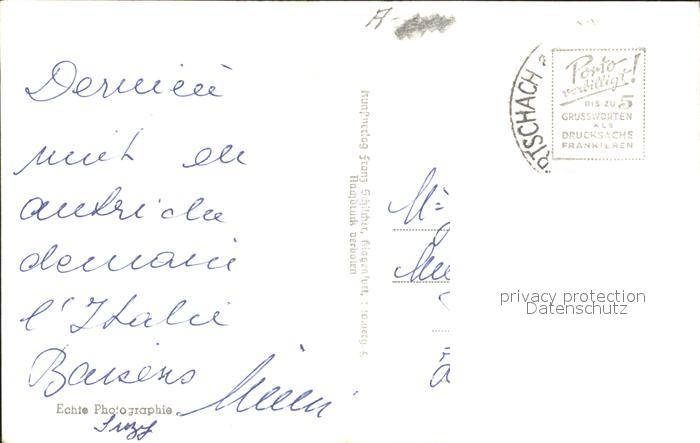 A-
Dernière
nuit en
autriche
demain
l'Italie
Baisers
Mimi
Suzy
Echte Photographie
Kunstverlag Franz Schilcher, Klagenfurt,
Nachdruck verboten
RTSCHACH
Porto
verbilligt!
BIS ZU 5
GRUSSWORTEN
ALS
DRUCKSACHE
FRANKIEREN
privacy protection
Datenschutz